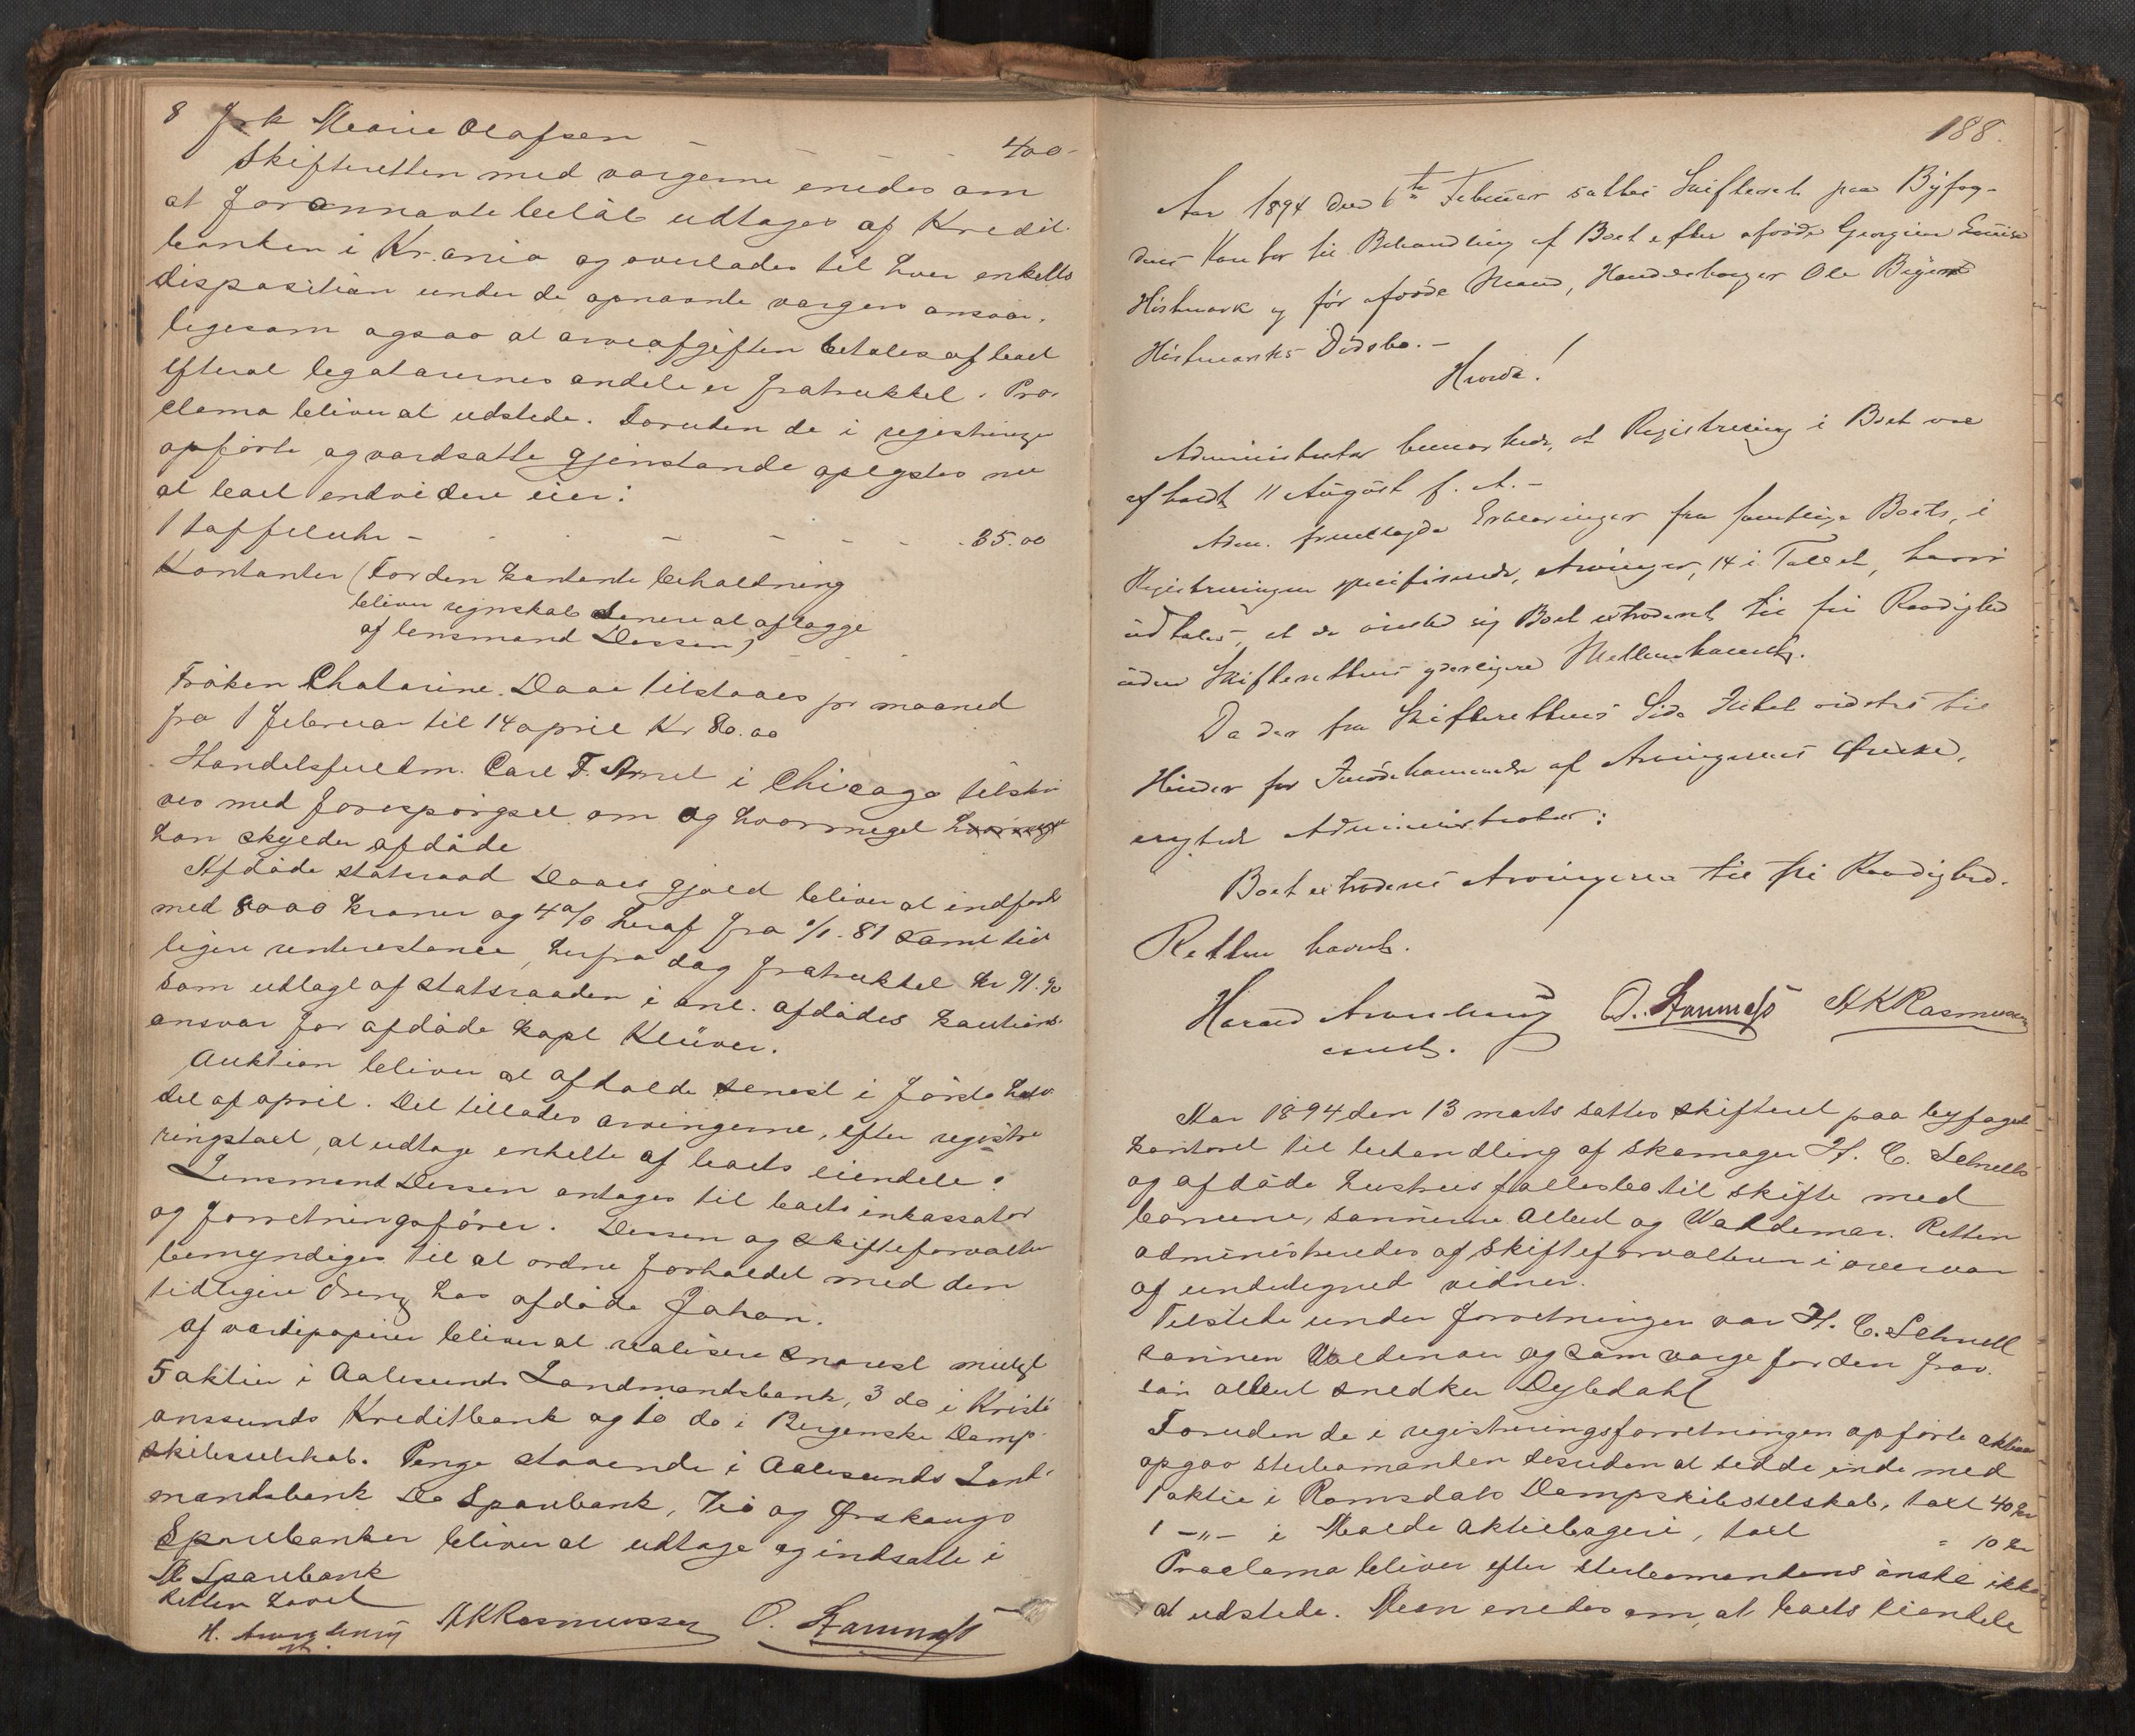 8 Frk Marie Olafsen - - - - 400-
Skifteretten med vargerne enedes om
at forannævnte beløb udtages af Kredit-
banken i Kr.ania og overlades til hver enkelts
disposition under de opnævnte vargers ansvar,
ligesom ogsaa at arveafgiften betales af boet
efterat legatarernes andele er fratrukket. Pro-
clama bliver at udstede. Foruden de i registreringen
opførte og værdsatte gjenstande oplystes nu
at boet endvidere eier:
1 taffeluhr - - - - - 35.00
Kontanter (For den kontante beholdning
bliver regnskab senere at aflægge
af lensmand Dessen)
Frøken Chatarine Daae tilstaaes pr maaned
fra 1 februar til 14 april Kr 80.00
Handelsfuldm. Carl F. i Chicago tilskri
ves med forespørgsel om og hvormeget
han skylder afdøde
Afdøde statsraad Daaes gjæld bliver at indføre
med 8000 kroner og 4% heraf fra 1/1. 81 samt tid
ligere renterestance, herfra dog fratrukket Kr 91.90
som udlagt af statsraaden i anl. afdødes kautions-
ansvar for afdøde kapt Klüver.
Auktion bliver at afholde senest i første halv
del af april. Det tillades arvingerne, efter registre
ringstaxt, at udtage enkelte af boets eiendele.
Lensmand Dessen antages til boets inkassator
og forretningsfører. Dessen og skifteforvalter
bemyndiges til at ordne forholdet med den
tidligere dreng hos afdøde Johan.
Af værdipapirer bliver at realisere snarest muligt
5 aktier i Aalesunds Landmandsbank, 3 do i Kristi
anssunds Kreditbank og 10 do i Bergenske Damp-
skibsselskab. Penge staaende i Aalesunds Land-
mandsbank Do Sparebank, og Ørskougs
Sparebanker bliver at udtage og indsætte i
M Sparebank
Retten hævet
H. KKRasmussen O. Stamnæs
188.
Aar 1894 den 6te Februar sattes Skifteret paa Byfog-
dens Kontor til Behandling af Boet efter afdøde Georgine Louise
og før afdøde Mand, Handelsborger Ole
Dødsbo.-
Hvorda!
Administrator bemærkede, at Registrering i Boet var
afholdt 11 August f. A.-
Adm. fremlagde Erklæringer fra samtlige Boets, i
Registreringen specificerede, Arvinger, 14 i Tallet, hvori
udtales, at de ønsked sig Boet extraderet til fri Raadighed
uden Skifterettens yderligere Mellemkomst.
Da der fra Skifterettens Side Intet vidstes til
Hinder for Imødekommende af Arvingernes Ønske,
erklærede Administrator:
Boet extraderes Arvingerne til fri Raadighed.
Retten hævet.
Harald
const. O. Stamnæs KKRasmussen
Aar 1894 den 13 marts sattes skifteret paa byfoged
kontoret til behandling af skomager H. C. Schnells
og afdøde hustrus fællesbo til skifte med
børnene, sønnerne Albert og Waldemar. Retten
administreredes af skifteforvalteren i overvær
af undertegnede vidner.
Tilstede under forretningen var H. C. Schnell
sønnen Waldemar og som varge for den fravæ-
søn Albert snedker Dyledahl
Foruden de i registreringsforretningen opførte aktier
opgav sterbomanden desuden at sidde inde med
1 aktie i Romsdals Dampskibsselskab, taxt 40 kr
1 -"- i Molde Aktiebageri, taxt = 10 kr
Proclama bliver efter sterbomandens ønske ikke
at udstede. Man enedes om, at boets eiendele